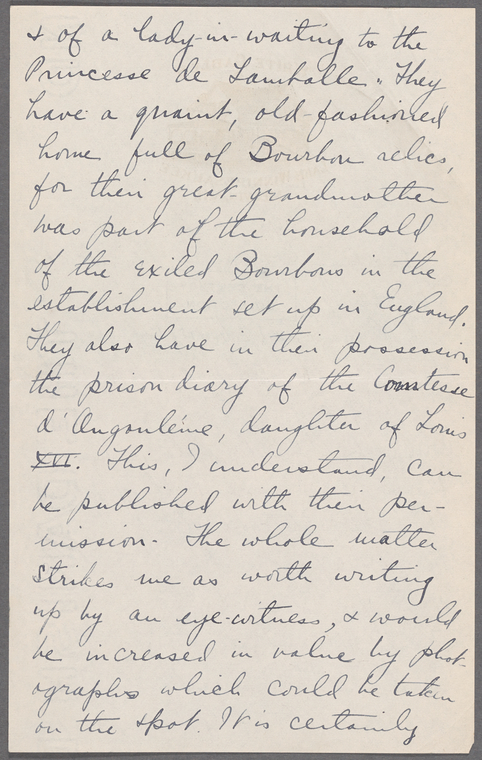 & of a lady-in-waiting to the
Princesse de Lamballe. They
have a quaint, old-fashioned
home full of Bourbon relics,
for their great-grandmother
was part of the household
of the exiled Bourbons in the
establishment set up in England.
They also have in their possession
the prison diary of the Comtesse
d'Angoulême, daughter of Louis
XVI. This, I understand, can
be published with their per-
mission. The whole matter
strikes me as worth writing
up by an eye-witness, & would
be increased in value by phot-
ographs which could be taken
on the spot. It is certainly